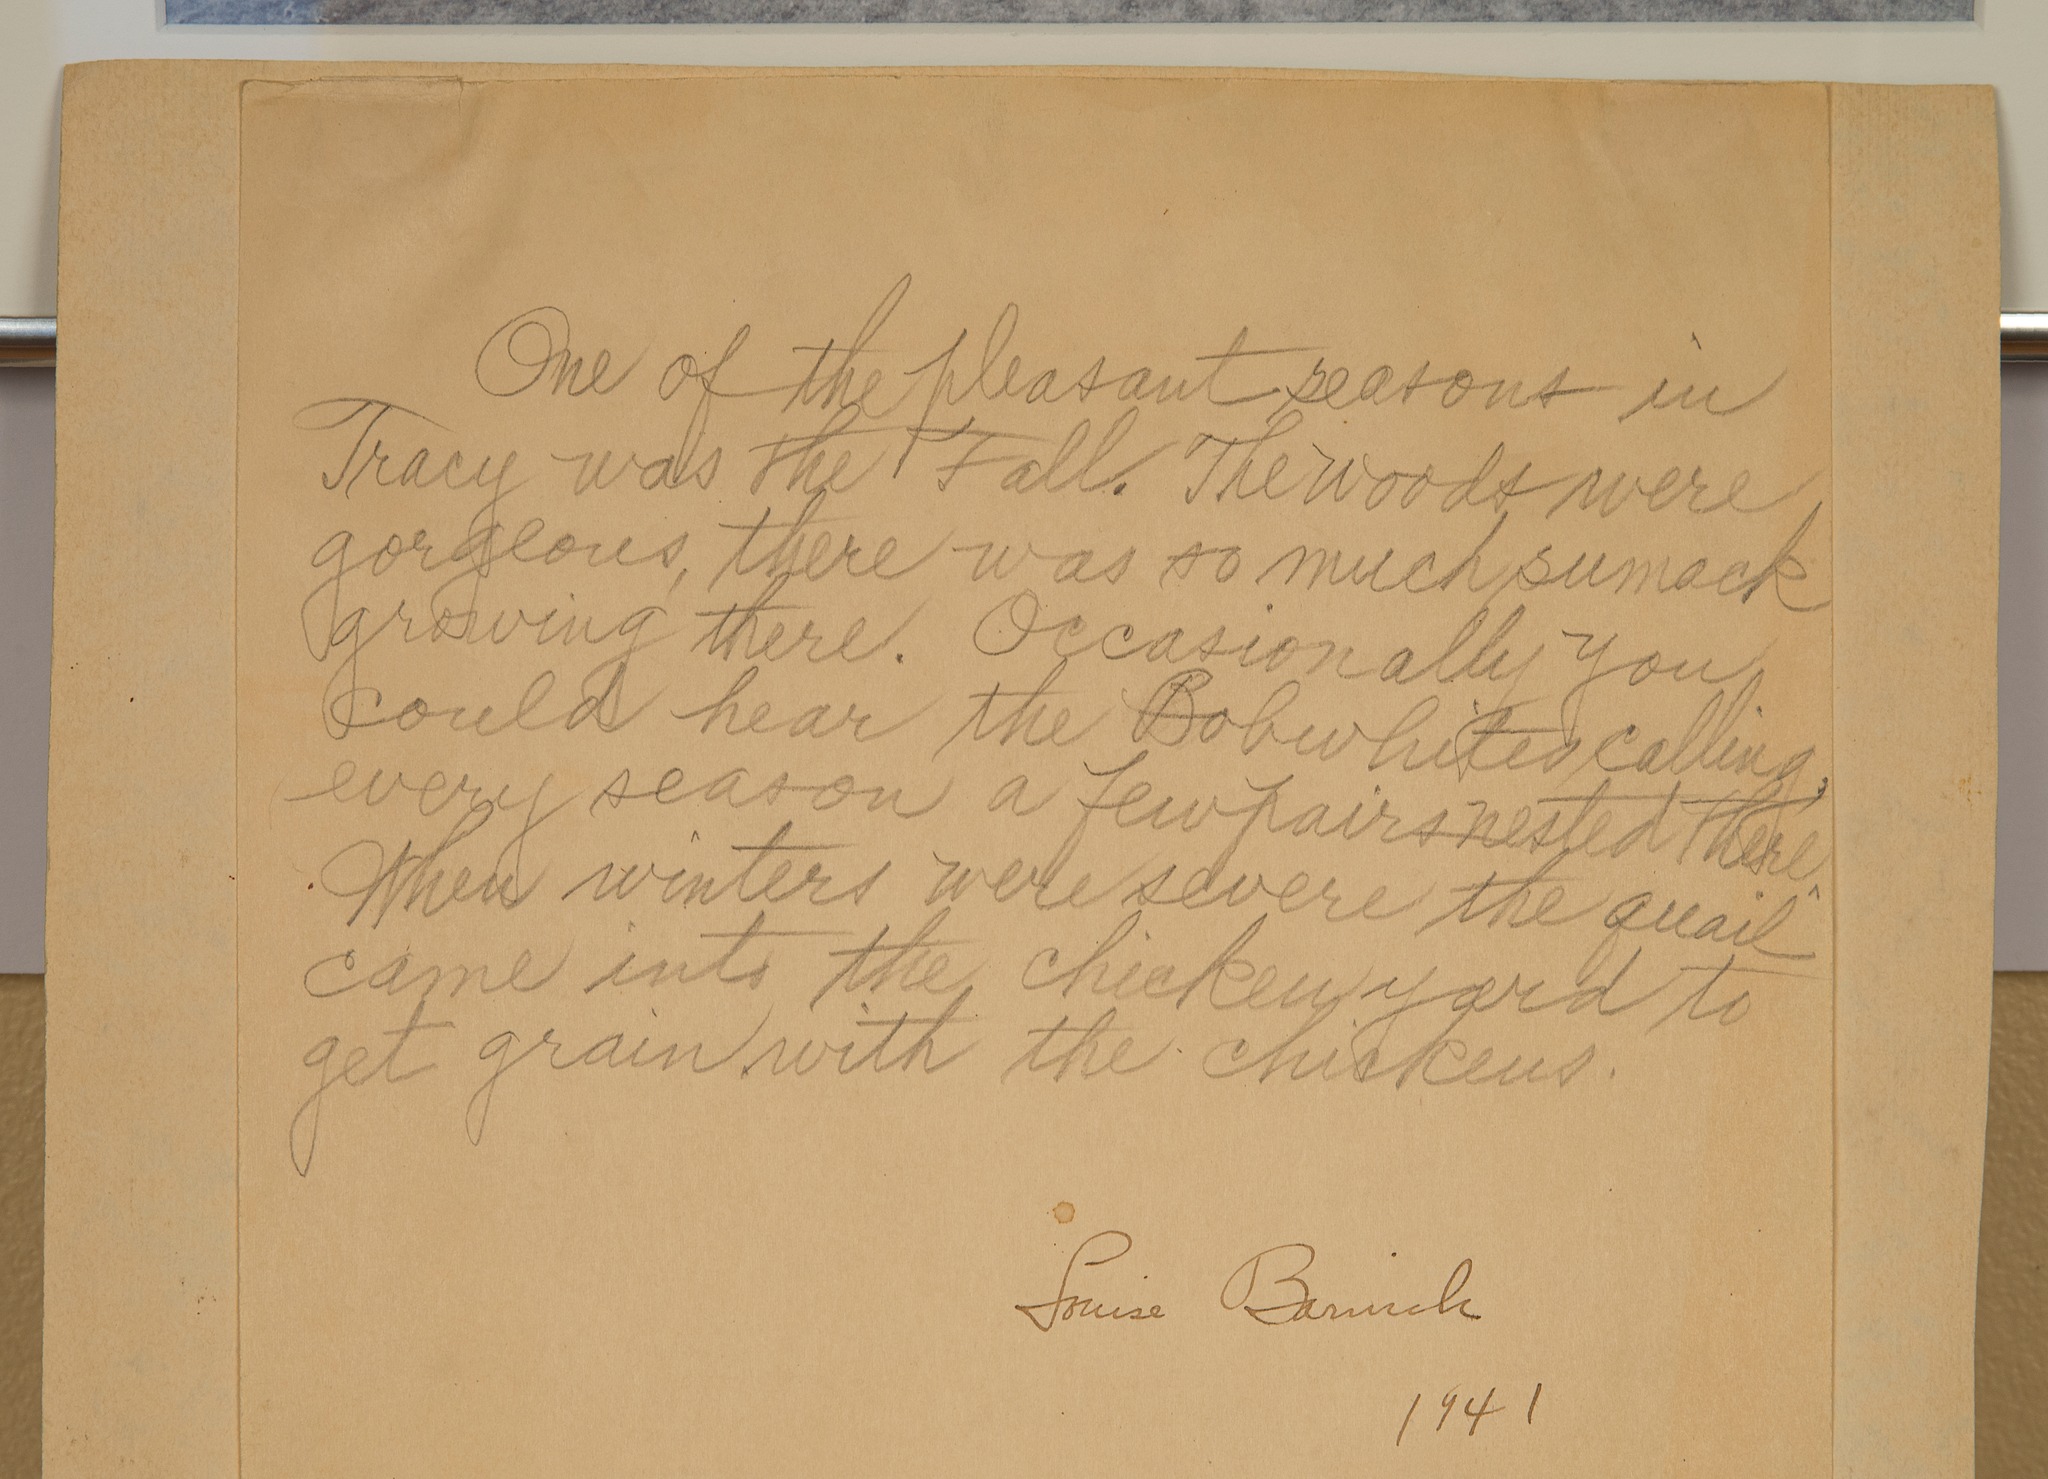 One of the pleasant seasons in
Tracy was the Fall. The woods were
gorgeous, there was so much sumack
growing there. Occasionally you
could hear the Bobwhites calling,
every season a few pairs nested there.
When winters were severe the quail
came into the chicken yard to
get grain with the chickens.
Louise
1941